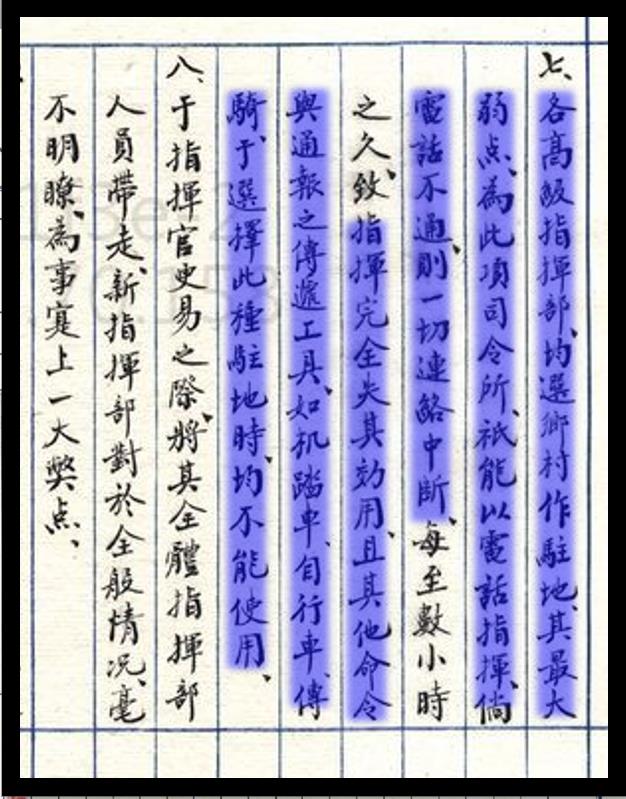 七、各高級指揮部、均選鄉村作駐地、其最大
弱点、為此項司令所、祇能以電話指揮、倘
電話不通、則一切連絡中斷、每至數小時
之久、致指揮完全失其効用、且其他命令
與通報之傳遞工具、如机踏車、自行車、傳
騎、于選擇此種駐地時、均不能使用、
八、于指揮官更易之際、將其全體指揮部
人員帶走、新指揮部對於全般情况、毫
不明瞭、為事寔上一大獘点、